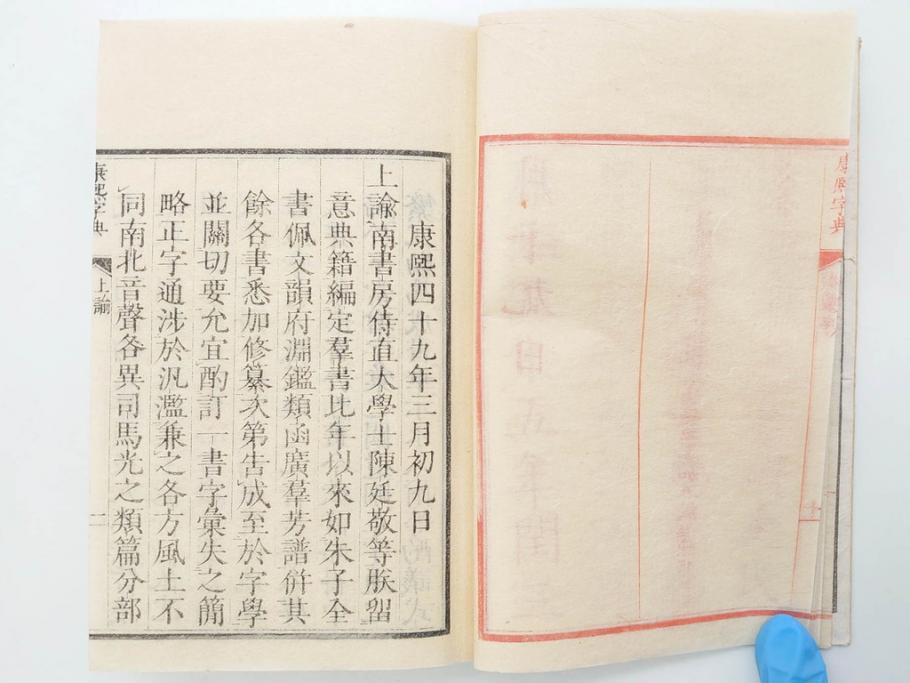 康熙字典
康熙四十九年三月初九日
上諭南書房侍直大學士陳廷敬等朕留
意典籍編定羣書比年以來如朱子全
書佩文韻府淵鑑類函廣羣芳譜倂其
餘各書悉加修纂次第告成至於字學
並關切要允宜酌訂一書字彙失之簡
略正字通涉於汎濫兼之各方風土不
同南北音聲各異司馬光之類篇分部
康熙字典
上諭